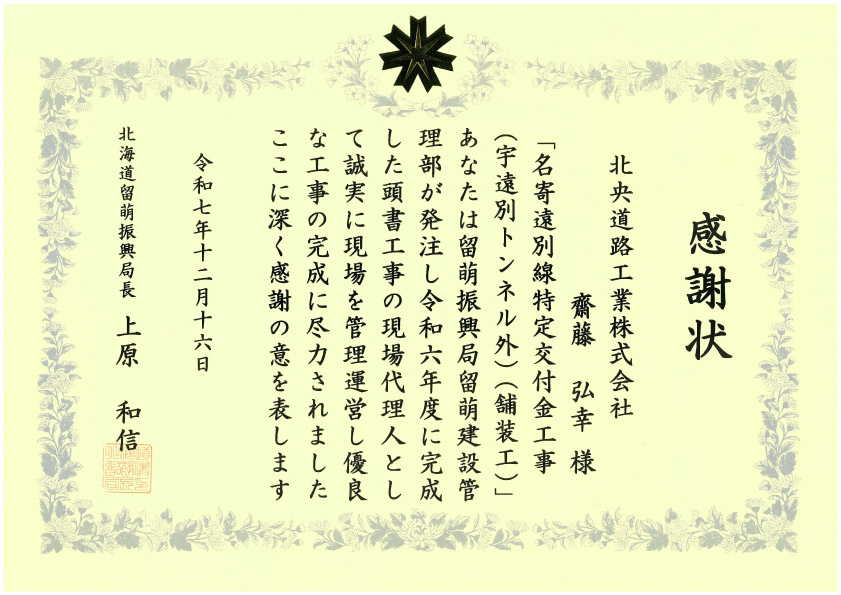 感謝状
北央道路工業株式会社
齋藤 弘幸 様
「名寄遠別線特定交付金工事
(宇遠別トンネル外)(舗装工)」
あなたは留萌振興局留萌建設管
理部が発注し令和六年度に完成
した頭書工事の現場代理人とし
て誠実に現場を管理運営し優良
な工事の完成に尽力されました
ここに深く感謝の意を表します
令和七年十二月十六日
北海道留萌振興局長 上原 和信